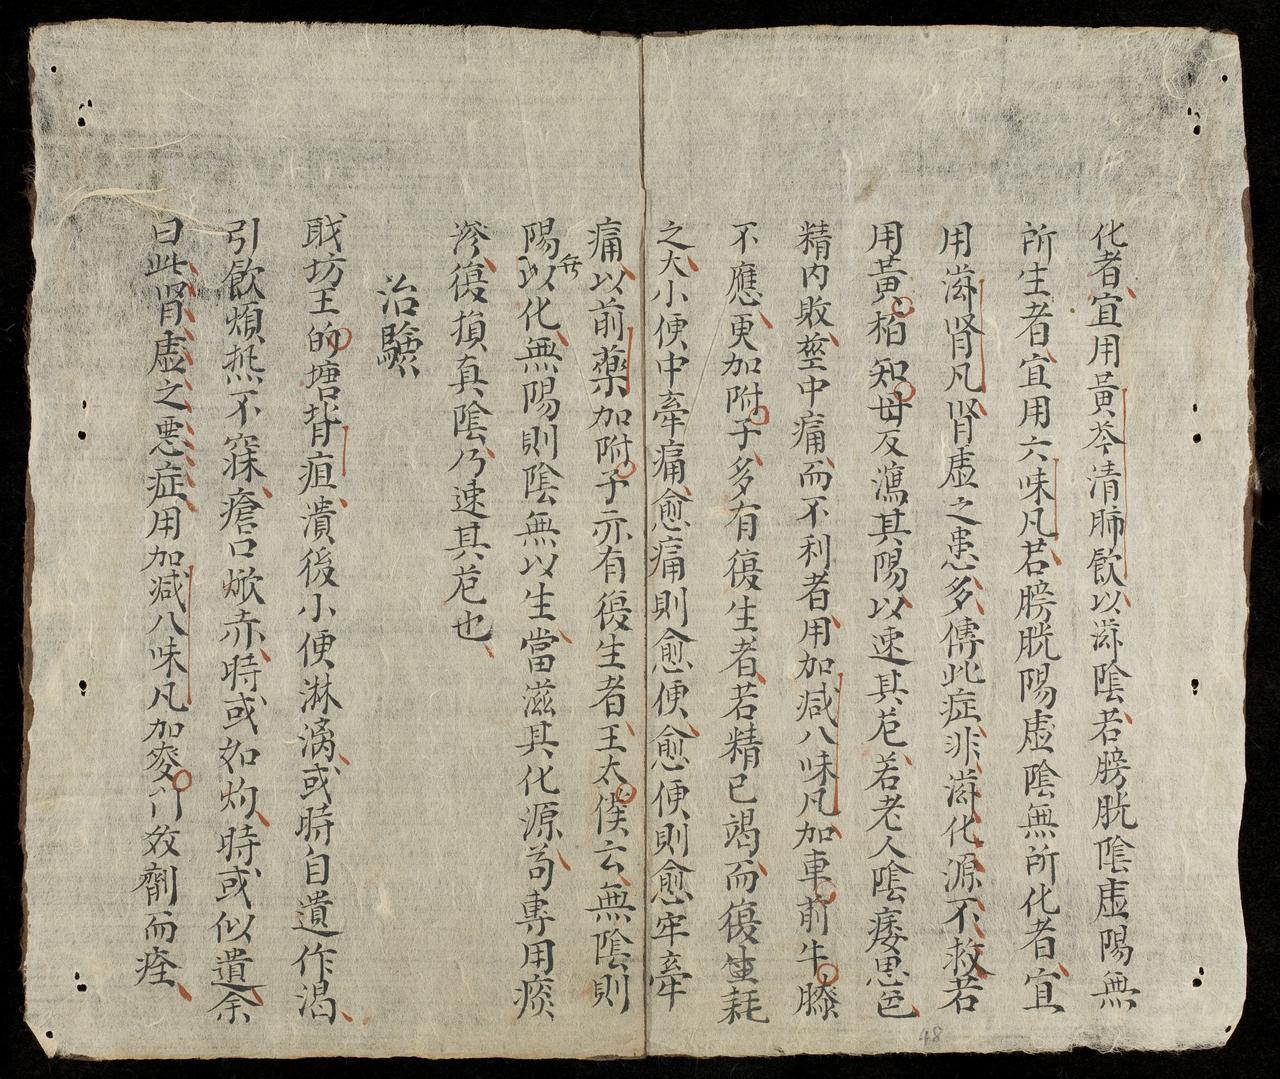 化者宜用黃芩清肺飲以滋陰若膀胱陰虛陽無
所生者宜用六味凡若膀胱陽虛陰無所化者宜
用滋肾凡肾虛之患多傳此症非滋化源不救若
用黃柏知毋反瀉其陽以速其危若老人陰痿思色
精内敗莖中痛而不利者用加减八味凡加車前牛膝
不應更加附子多有復生者若精已竭而復生耗
之大小便中牽痛愈痛則愈便愈便則愈牢牽
痛以前藥加附子亦有復生者王太僕云無陰則
陽無以化無陽則陰無以生當滋其化源苟專用痰
滲復損真陰乃速其危也
治驗
戢坊王的塘背疽潰後小便淋漓或時自遺作渴
引飲煩热不寐瘡口焮赤時或如灼時或似遺余
曰此肾虛之悪症用加减八味凡加麥门数劑而痊
48